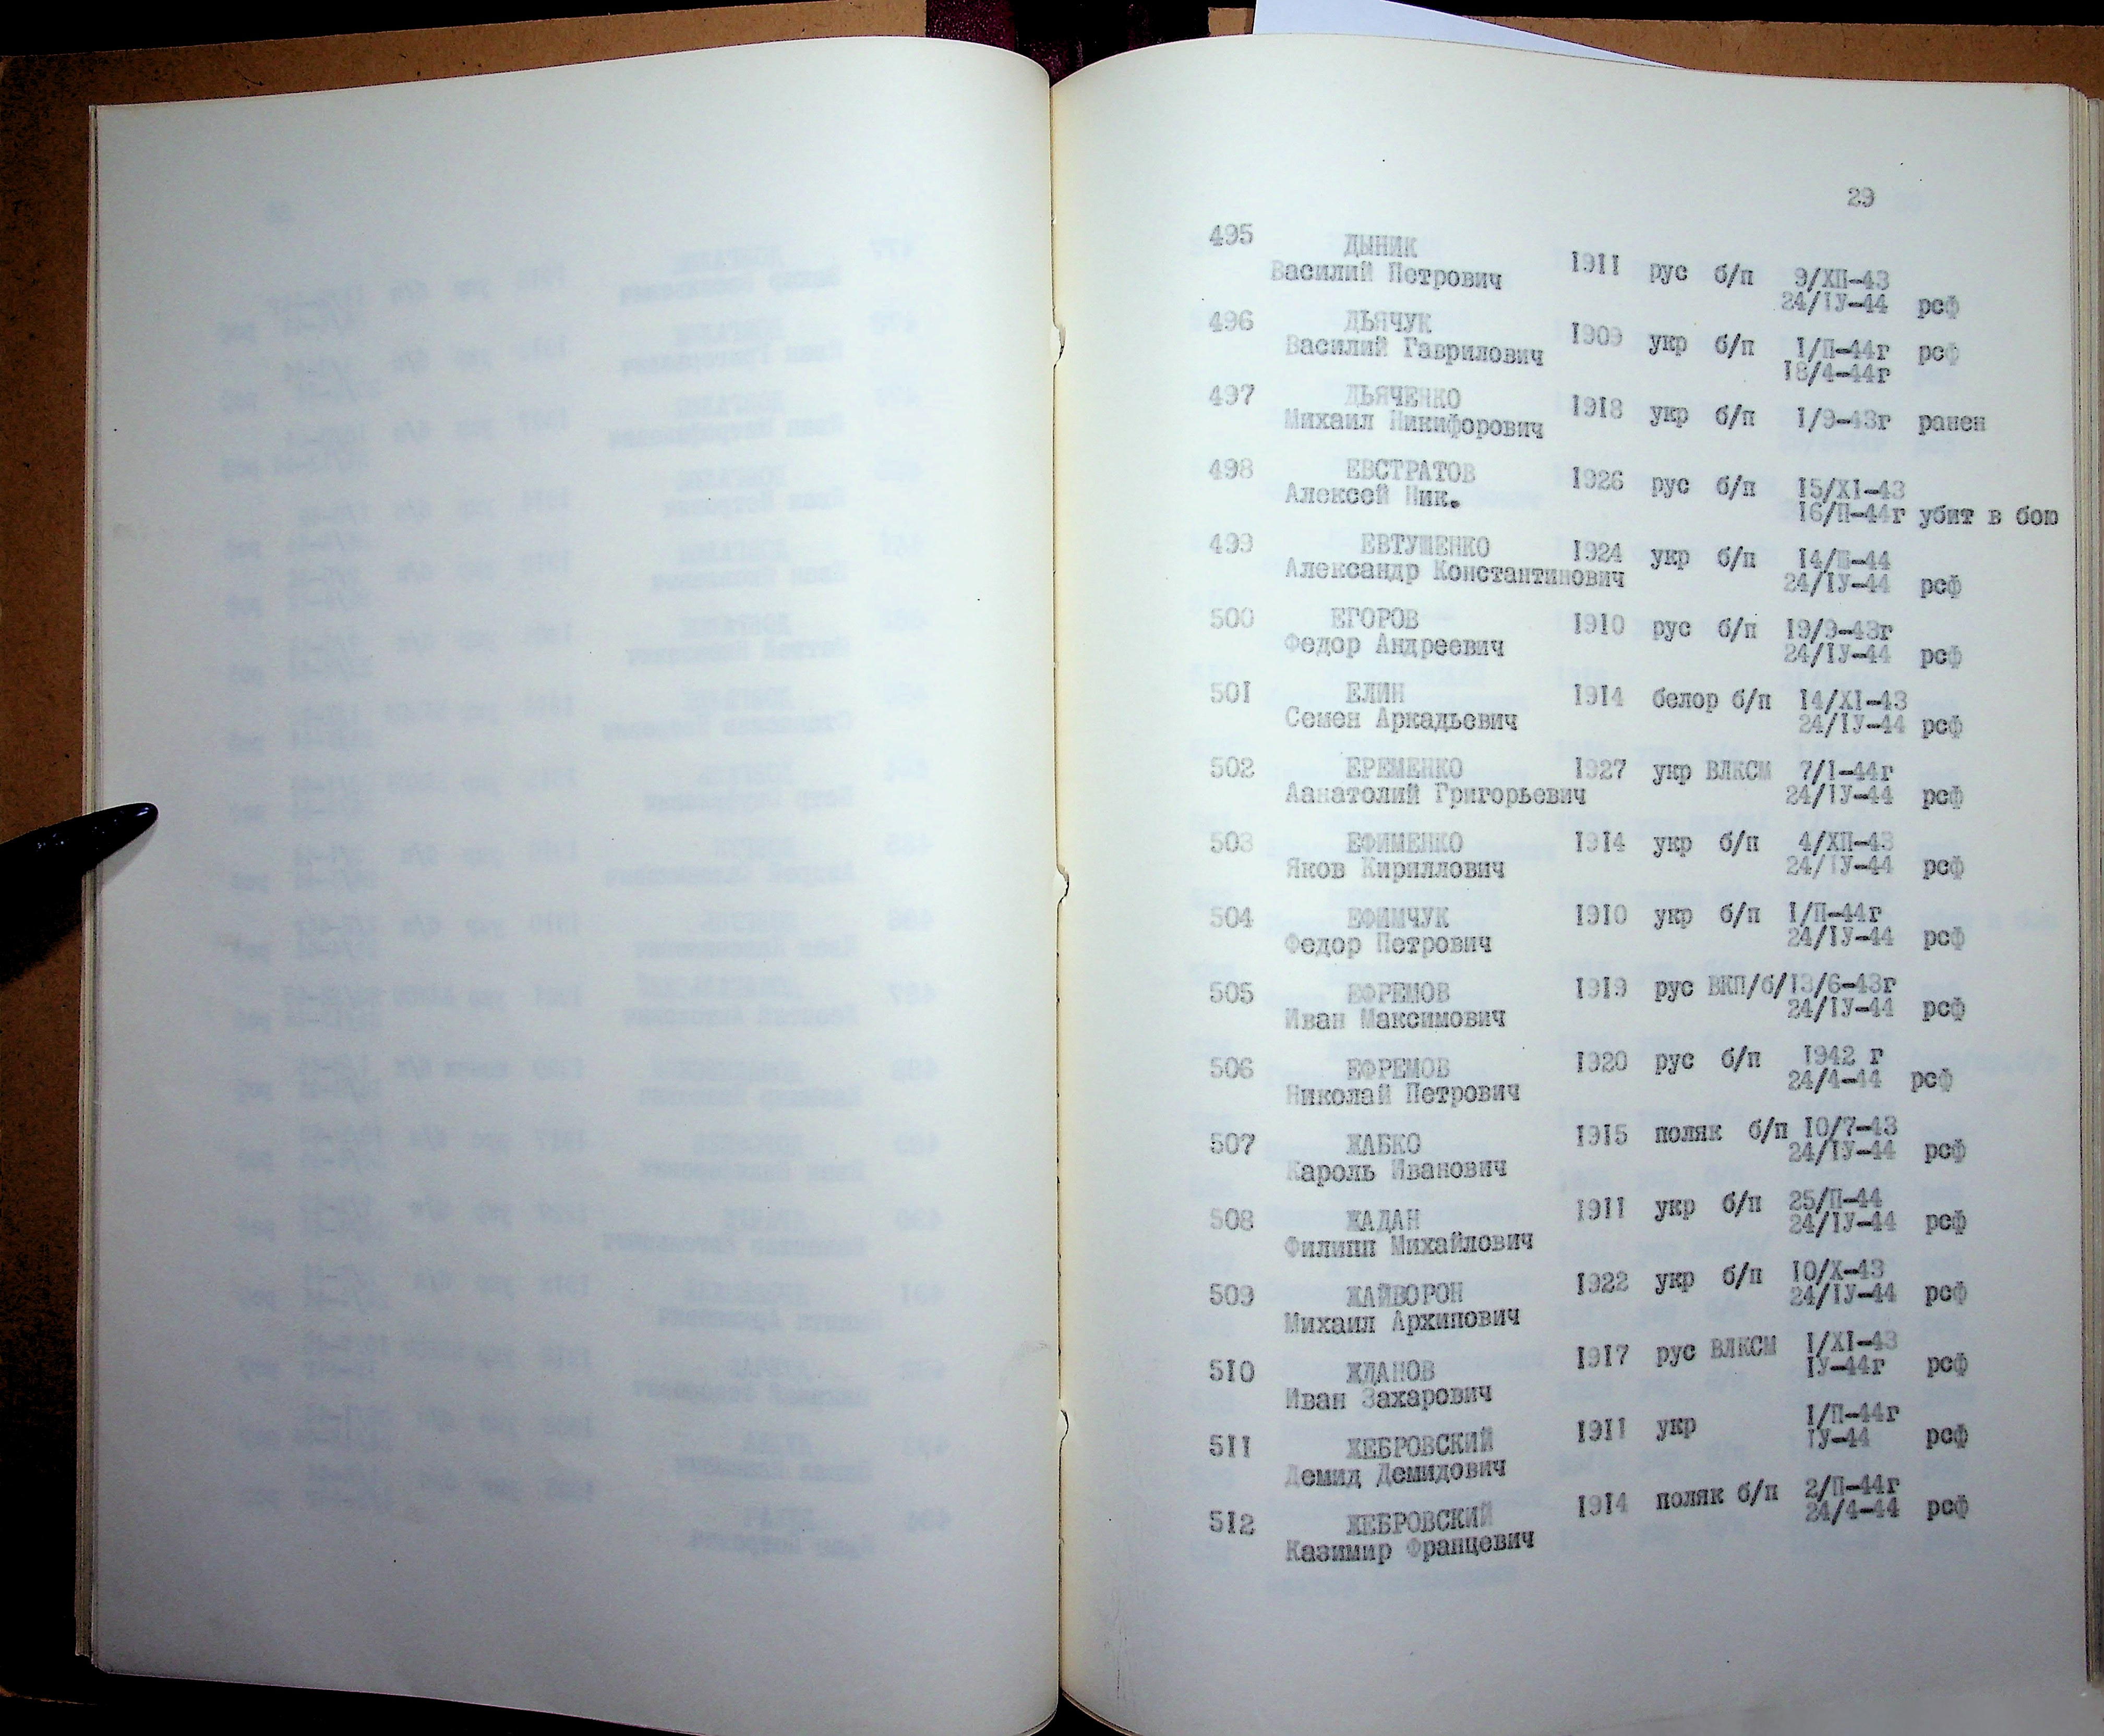 29
495 ДЫНИК 1911 рус б/п 9/ХП-43
Василий Петрович 24/IУ-44 рсф
496 ДЬЯЧУК 1909 укр б/п 1/П-44г рсф
Василий Гаврилович 18/4-44г
497 ДЬЯЧЕНКО 1918 укр б/п 1/9-43г ранен
Михаил Никифорович
498 ЕВСТРАТОВ 1926 рус б/п 15/XI-43
Алексей Ник. 16/П-44г убит в бою
499 ЕВТУШЕНКО 1924 укр б/п 14/Ш-44
Александр Константинович 24/IУ-44 рсф
500 ЕГОРОВ 1910 рус б/п 19/9-43г
Федор Андреевич 24/IУ-44 рсф
501 ЕЛИН 1914 белор б/п 14/XI-43
Семен Аркадьевич 24/IУ-44 рсф
502 ЕРЕМЕНКО 1927 укр ВЛКСМ 7/1-44г
Аанатолий Григорьевич 24/IУ-44 рсф
503 ЕФИМЕНКО 1914 укр б/п 4/ХП-43
Яков Кириллович 24/IУ-44 рсф
504 ЕФИМЧУК 1910 укр б/п 1/П-44г
Федор Петрович 24/IУ-44 рсф
505 ЕФРЕМОВ 1919 рус ВКП/б/13/6-43г
Иван Максимович 24/IУ-44 рсф
506 ЕФРЕМОВ 1920 рус б/п 1942 г
Николай Петрович 24/4-44 рсф
507 ЖАБКО 1915 поляк б/п 10/7-43
Кароль Иванович 24/IУ-44 рсф
508 ЖАДАН 1911 укр б/п 25/П-44
Филипп Михайлович 24/IУ-44 рсф
509 ЖАЙВОРОН 1922 укр б/п 10/Х-43
Михаил Архипович 24/IУ-44 рсф
510 ЖДАНОВ 1917 рус ВЛКСМ 1/XI-43
Иван Захарович IУ-44г рсф
511 ЖЕБРОВСКИЙ 1911 укр 1/П-44г
Демид Демидович IУ-44 рсф
512 ЖЕБРОВСКИЙ 1914 поляк б/п 2/П-44г
Казимир Францевич 24/4-44 рсф